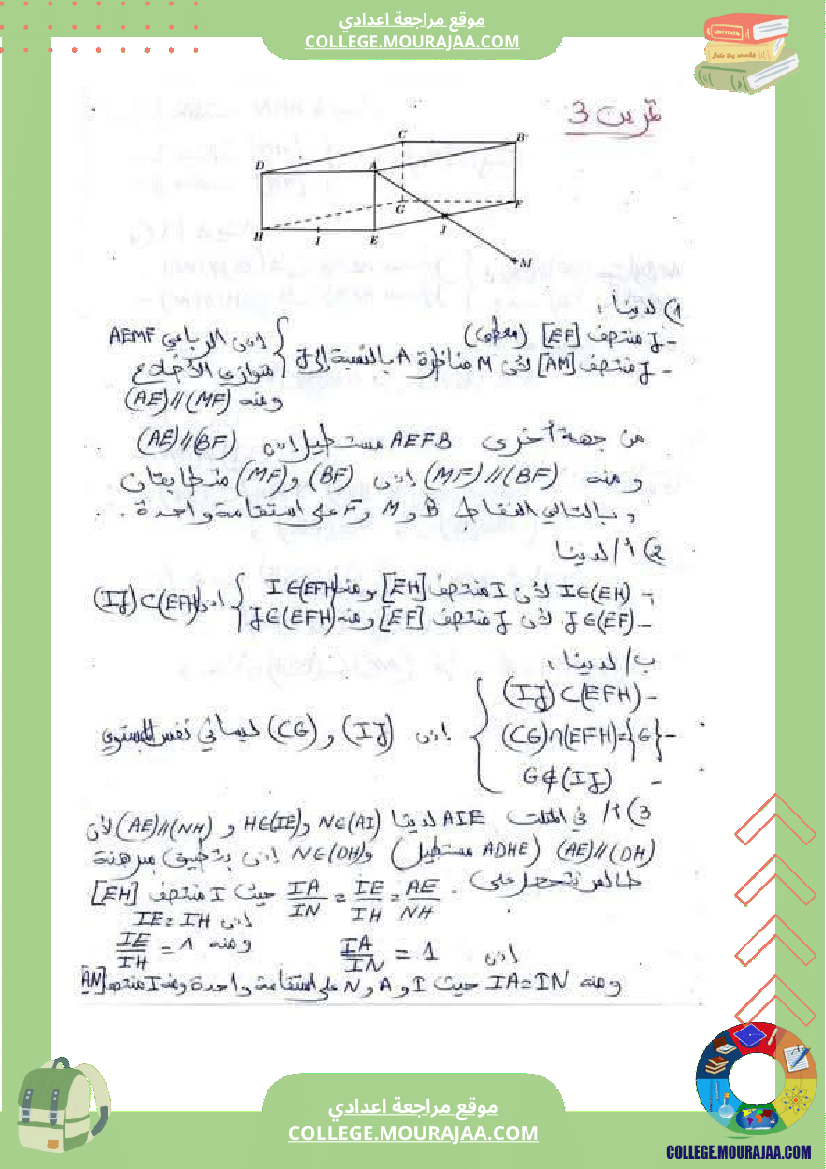 موقع مراجعة اعدادي
COLLEGE.MOURAJAA.COM
تمرين 3
C B
D A
G F
H I E J
M
1) لدينا :
- J منتصف [EF] (معطى)
- J منتصف [AM] لأن M مناظرة A بالنسبة إلى J
إذن الرباعي AEMF
متوازي الأضلاع
ومنه (AE)//(MF)
من جهة أخرى AEFB مستطيل إذن (AE)//(BF)
ومنه (MF)//(BF) إذن (BF) و (MF) منطابقان
وبالتالي النقاط B و M و F على استقامة واحدة .
2) أ/ لدينا
- I∈(EH) لأن I منتصف [EH] ومنه I∈(EFH)
- J∈(EF) لأن J منتصف [EF] ومنه J∈(EFH)
إذن (IJ)⊂(EFH)
ب/ لدينا :
- (IJ)⊂(EFH)
- (CG)∩(EFH)={G}
- G∉(IJ)
إذن (IJ) و (CG) ليسا في نفس المستوي
3) أ/ في المثلث AIE لدينا N∈(AI) و H∈(IE) و (AE)//(NH) لأن
(AE)//(DH) (ADHE مستطيل) و N∈(DH) إذن بتطبيق مبرهنة
طالس نتحصل على IA/IN = IE/IH = AE/NH حيث I منتصف [EH]
إذن IE=IH
ومنه IE/IH = 1
إذن IA/IN = 1
ومنه IA=IN حيث I و A و N على استقامة واحدة ومنه I منتصف [AN]
موقع مراجعة اعدادي
COLLEGE.MOURAJAA.COM
COLLEGE.MOURAJAA.COM